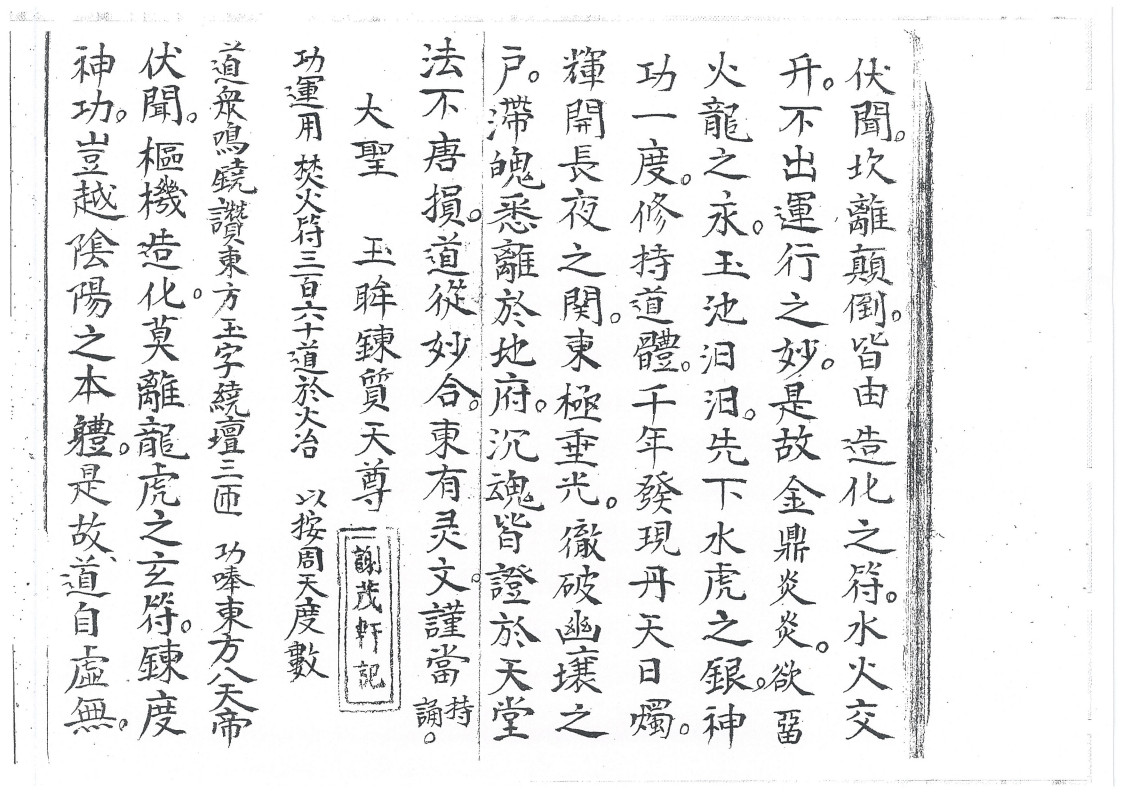 伏聞。坎離顛倒。皆由造化之符。水火交
升。不出運行之妙。是故金鼎炎炎。欲畱
火龍之汞。玉池汩汩。先下水虎之銀。神
功一度。修持道體。千年發現丹天日燭。
輝開長夜之関。東極垂光。徹破幽壤之
戶。滯魄悉離於地府。沉魂皆證於天堂
法不唐損。道從妙合。東有灵文。謹當持誦。
大聖　玉眸鍊質天尊
謝茂軒記
功運用　焚火符三百六十道於火冶　以按周天度數
道衆鳴鐃讚東方玉字繞壇三匝　功唪東方八天帝
伏聞。樞機造化。莫離龍虎之玄符。鍊度
神功。豈越陰陽之本體。是故道自虛無。